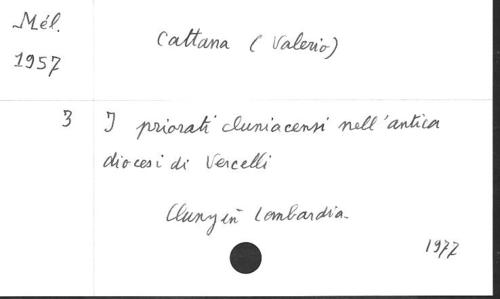 Mél.
1957
3
Cattana (Valerio)
I priorati cluniacensi nell'antica
diocesi di Vercelli
Cluny in Lombardia.
1977